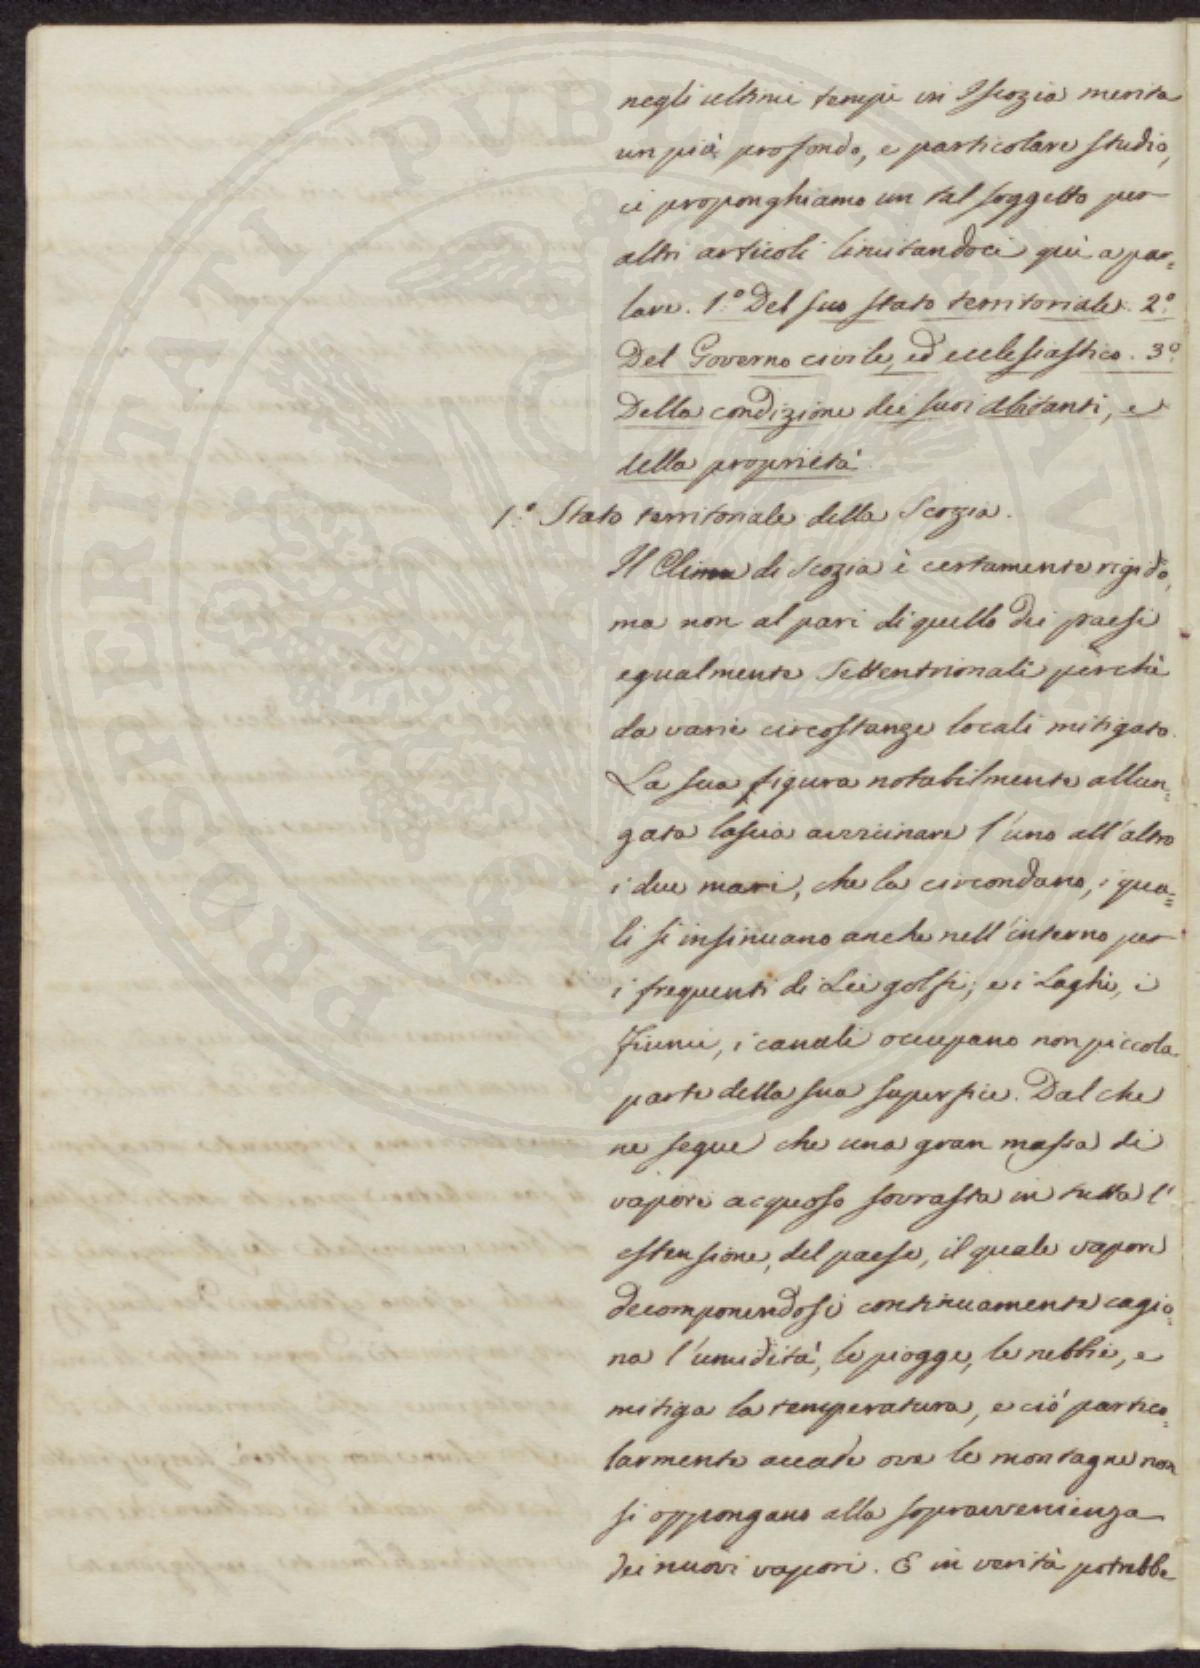 negli ultimi tempi in Iscozia merita
un più profondo, e particolare studio,
ci proponghiamo un tal soggetto per
altri articoli limitandoci quì a par=
lare. 1.° Del suo stato territoriale. 2.°
Del Governo civile, ed ecclesiastico. 3.°
Della condizione dei suoi abitanti, e
della proprietà.
1.° Stato territoriale della Scozia.
Il Clima di Scozia è certamente rigido,
ma non al pari di quello dei paesi
egualmente Settentrionali perchè
da varie circostanze locali mitigato.
La sua figura notabilmente allun=
gata lascia avvicinare l'uno all'altro
i due mari, che la circondano, i qua=
li si insinuano anche nell'interno per
i frequenti di Lei golfi; e i Laghi, i
Fiumi, i canali occupano non piccola
parte della sua superficie. Dal che
ne segue che una gran massa di
vapore acquoso sovrasta in tutta l'
estensione, del paese, il quale vapore
decomponendosi continuamente cagio=
na l'umidità, le piogge, le nebbie, e
mitiga la temperatura, e ciò partico=
larmente accade ove le montagne non
si oppongano alla sopravvenienza
dei nuovi vapori. E in verità potrebbe
PROSPERITATI PUBLICAE